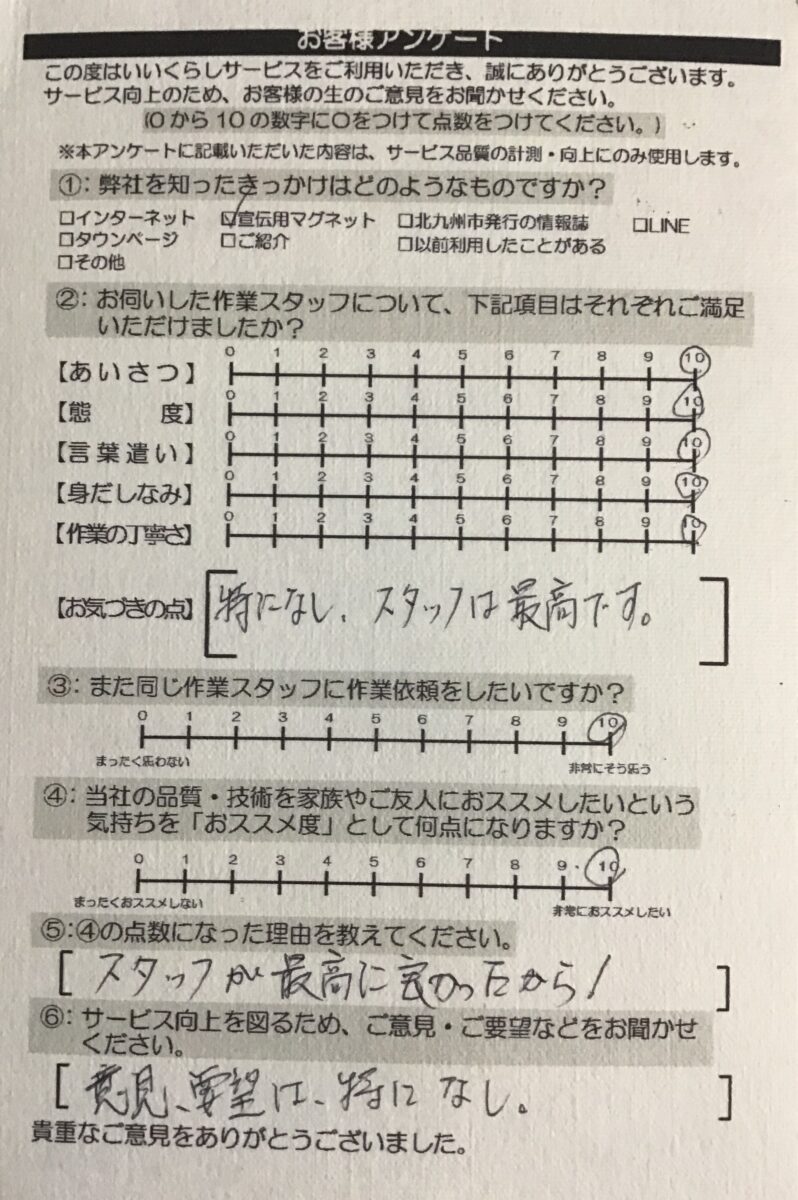 お客様アンケート
この度はいいくらしサービスをご利用いただき、誠にありがとうございます。
サービス向上のため、お客様の生のご意見をお聞かせください。
(0から10の数字に〇をつけて点数をつけてください。)
※本アンケートに記載いただいた内容は、サービス品質の計測・向上にのみ使用します。
①：弊社を知ったきっかけはどのようなものですか？
□インターネット ☑宣伝用マグネット □北九州市発行の情報誌 □LINE
□タウンページ □ご紹介 □以前利用したことがある
□その他
②：お伺いした作業スタッフについて、下記項目はそれぞれご満足
いただけましたか？
0 1 2 3 4 5 6 7 8 9 10
【あいさつ】
0 1 2 3 4 5 6 7 8 9 10
【態度】
0 1 2 3 4 5 6 7 8 9 10
【言葉遣い】
0 1 2 3 4 5 6 7 8 9 10
【身だしなみ】
0 1 2 3 4 5 6 7 8 9 10
【作業の丁寧さ】
【お気づきの点】 [特になし、スタッフは最高です。]
③：また同じ作業スタッフに作業依頼をしたいですか？
0 1 2 3 4 5 6 7 8 9 10
まったく思わない 非常にそう思う
④：当社の品質・技術を家族やご友人におススメしたいという
気持ちを「おススメ度」として何点になりますか？
0 1 2 3 4 5 6 7 8 9 10
まったくおススメしない 非常におススメしたい
⑤：④の点数になった理由を教えてください。
[スタッフが最高に良かったから！]
⑥：サービス向上を図るため、ご意見・ご要望などをお聞かせ
ください。
[意見、要望は、特になし。]
貴重なご意見をありがとうございました。